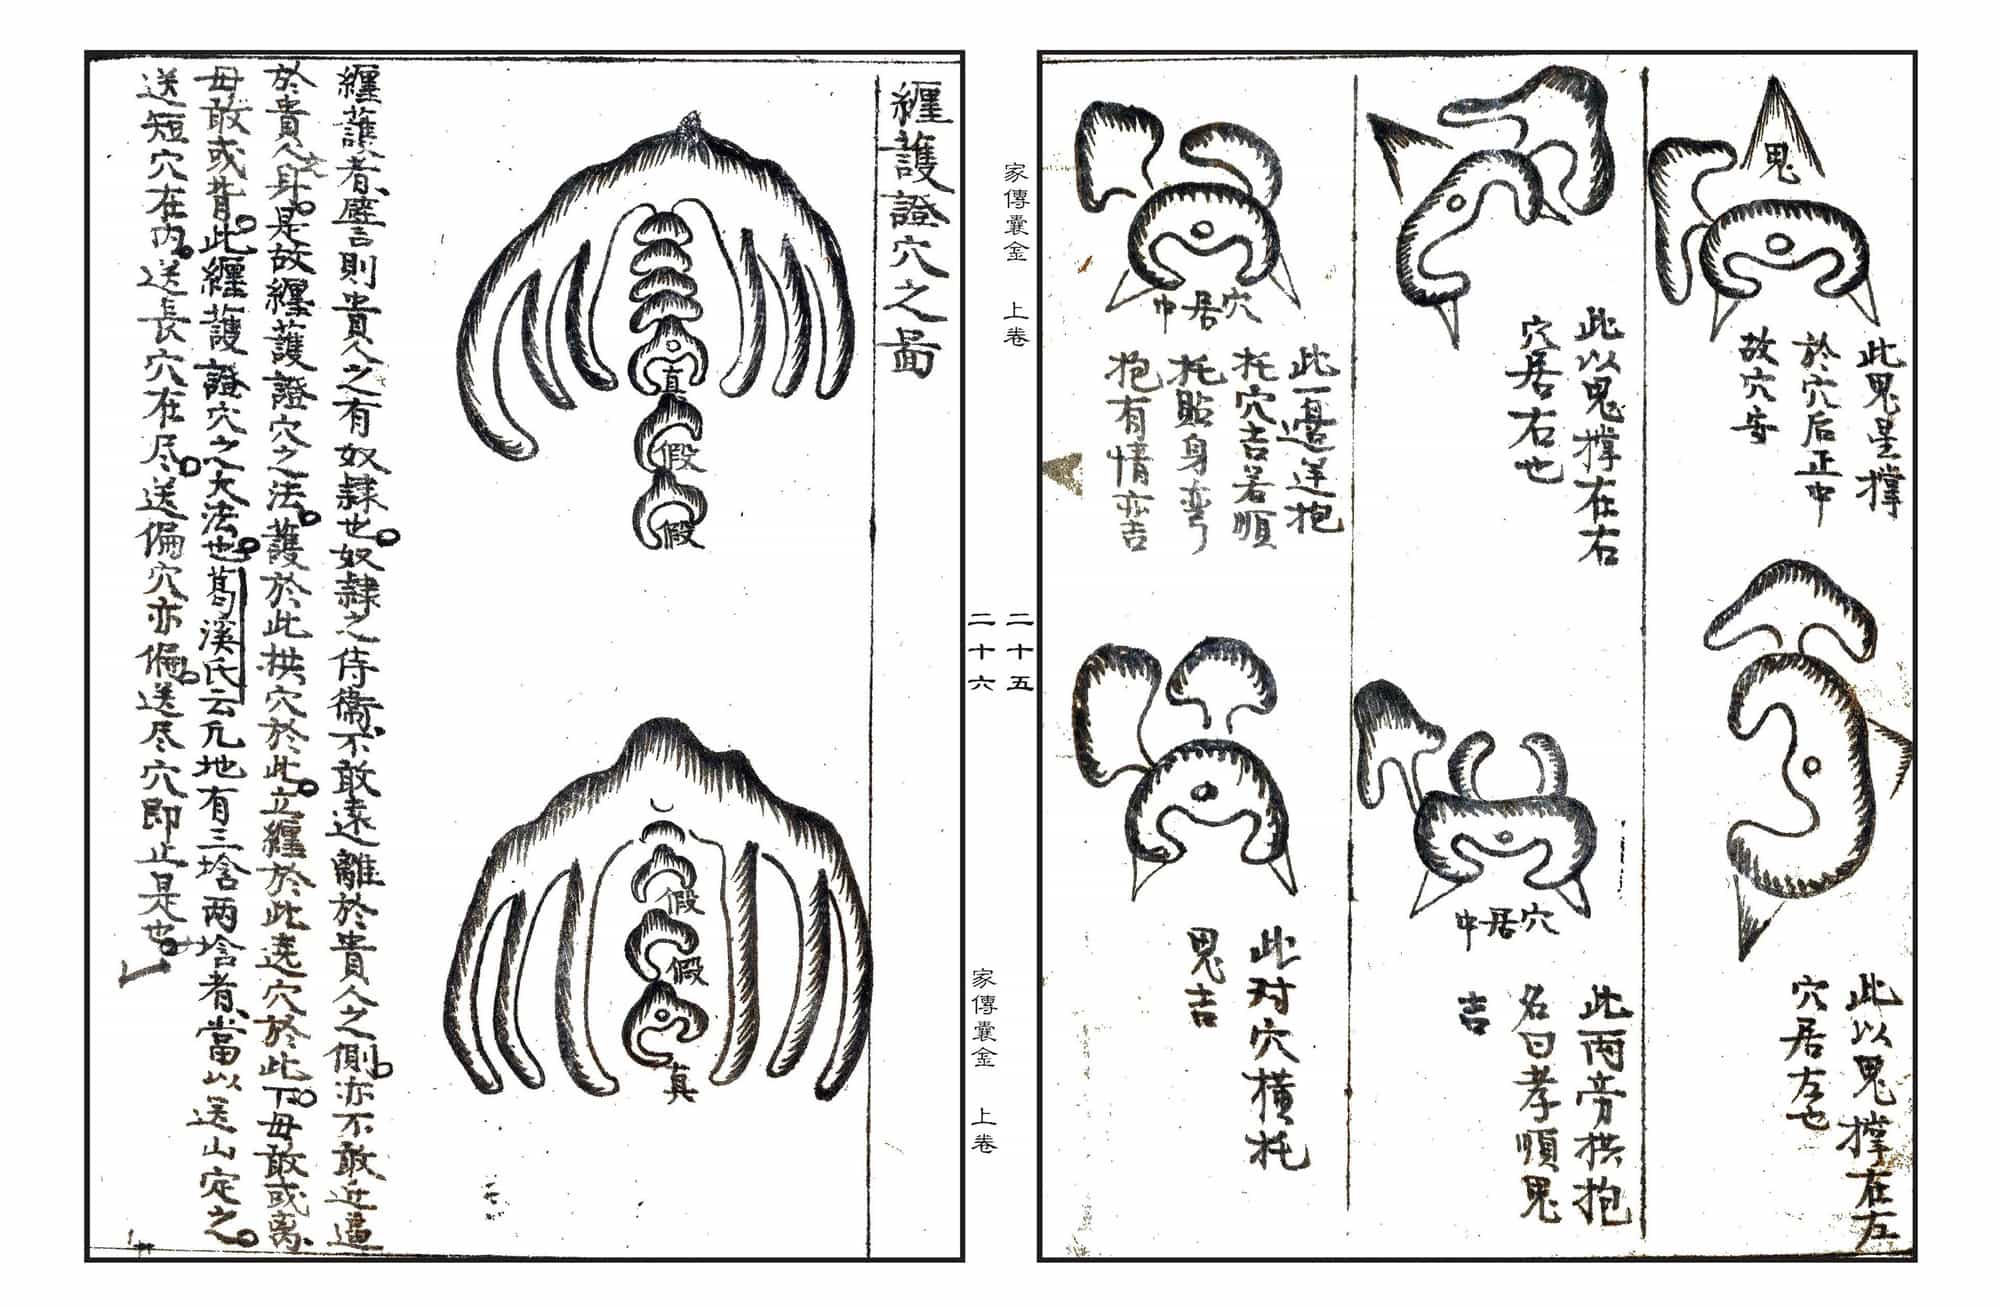 鬼
此鬼星撑
於穴后正中
故穴安
此以鬼撑在左
穴居左也
此以鬼撑在右
穴居右也
穴居中
此両旁拱抱
名曰孝順鬼
吉
穴居中
此一邉逆抱
托穴吉若順
托貼身弯
抱有情亦吉
此对穴横托
鬼吉
家傳囊金 上卷
二十五
二十六
家傳囊金 上卷
纏護證穴之啚
真
假
假
假
假
真
纏護者譬言則貴人之有奴隷也奴隷之侍衞不敢遠離於貴人之側亦不敢近逼
於貴人之身是故纏護證穴之法護於此拱穴於此立纏於此遶穴於此下毋敢或离
毋敢或背此纏護證穴之大法也葛溪氏云凣地有三垥两垥者當以送山定之
送短穴在内送長穴在尽送偏穴亦偏送尽穴即止是也